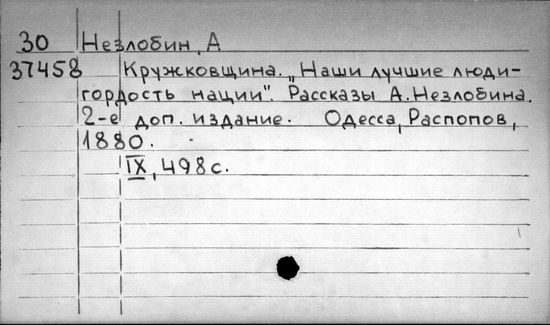 30 Незлобин, А
37458 Кружковщина. „Наши лучшие люди-
гордость нации". Рассказы А. Незлобина.
2-е доп. издание. Одесса, Распопов,
1880.
IX, 498 с.